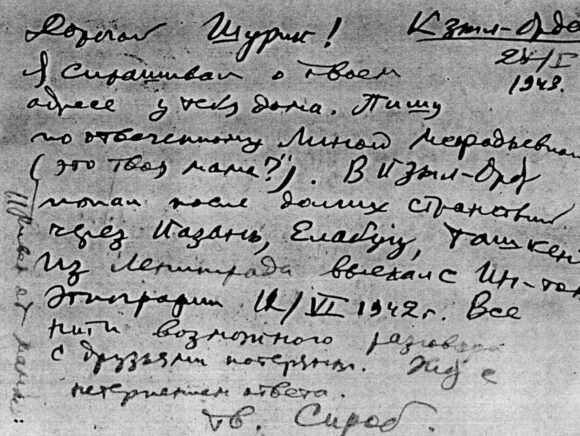 Дорогой Шурик! Кзыл-Орда
24/I
1943.
Я спрашивал о твоем
адресе у тебя дома. Пишу
по отвеченному Линой Мефодьевной
(это твоя мама?). В Кзыл-Орду
попал после долгих странствий
через Казань, Елабугу, Ташкент
Из Ленинграда выехал с Ин-том
Этнографии VI 1942 г. Все
нити возможного разговора
с друзьями потеряны. Жду с
нетерпением ответа.
Тв. Сироб.
Привет от мамы